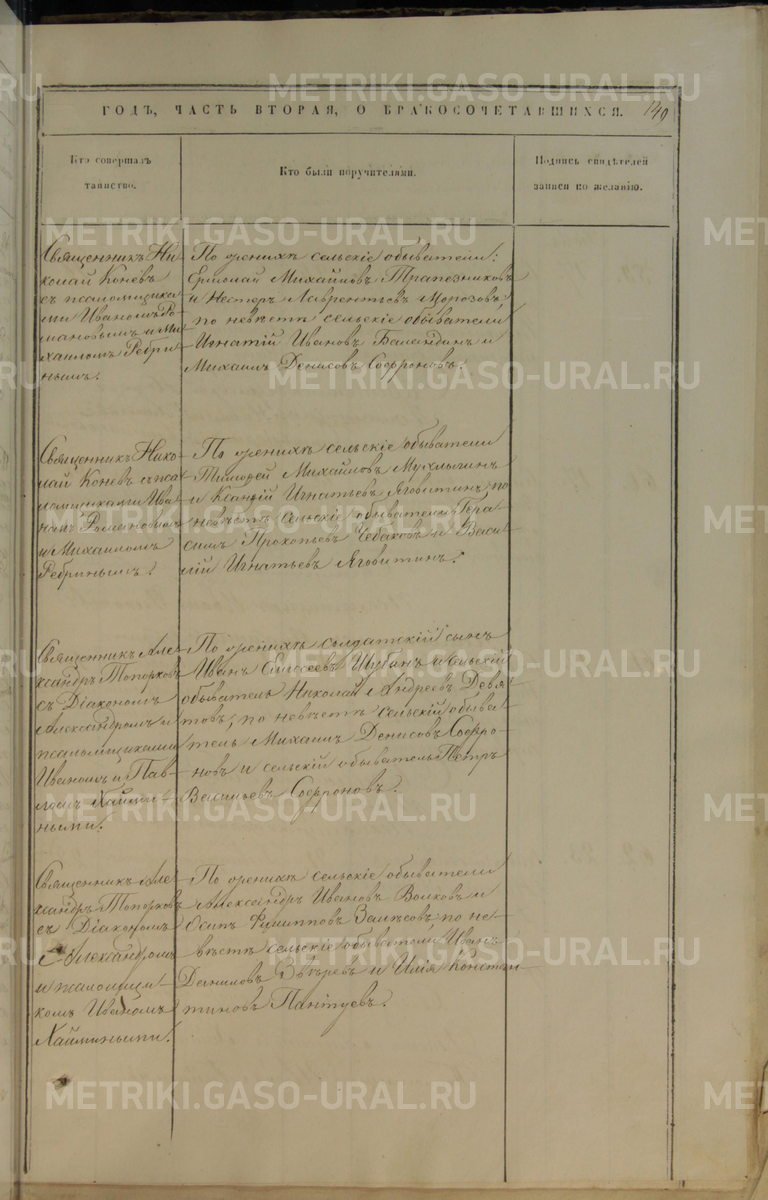 ГОДЪ, ЧАСТЬ ВТОРАЯ, О БРАКОСОЧЕТАВШИХСЯ.
149
Кто совершалъ
таинство.
Кто были поручителями.
Подпись свидѣтелей
записи по желанію.
Священникъ Ни-
колай Коневъ
съ псаломщика-
ми Иваномъ Ро-
мановымъ и Ми-
хаиломъ Ребри-
нымъ.
По женихѣ сельскіе обыватели:
Ермолай Михайловъ Трапезниковъ
и Несторъ Лаврентьевъ Морозовъ,
по невѣстѣ сельскіе обыватели
Игнатій Ивановъ Баландинъ и
Михаилъ Денисовъ Софроновъ.
Священникъ Нико-
лай Коневъ съ пса-
ломщиками Ива-
номъ Романовымъ
и Михаиломъ
Ребринымъ.
По женихѣ сельскіе обыватели
Тимофей Михайловъ Мухлынинъ
и Игнатьевъ Яговитинъ, по
невѣстѣ сельскіе обыватели Гера-
симъ Прокопьевъ Чебаковъ и Васи-
лій Игнатьевъ Яговитинъ.
Священникъ Але-
ксандръ Топорковъ
съ Діакономъ
Александромъ и
псаломщиками
Иваномъ и Пав-
ломъ Хаймин-
ными.
По женихѣ солдатскій сынъ
Иванъ Елисеевъ Шубинъ и сельскій
обыватель Николай Андреевъ Девя-
товъ, по невѣстѣ сельскій обыва-
тель Михаилъ Денисовъ Софро-
новъ и сельскій обыватель Петръ
Васильевъ Софроновъ.
Священникъ Але-
ксандръ Топорковъ
съ Діакономъ
Александромъ
и псаломщи-
комъ Иваномъ
Хайминными.
По женихѣ сельскіе обыватели
Александръ Ивановъ Волковъ и
Осипъ Филипповъ Замѣсовъ, по не-
вѣстѣ сельскіе обыватели Иванъ
Даниловъ и Илія Констан-
тиновъ Пантуевъ.
METRIKI.GASO-URAL.RU